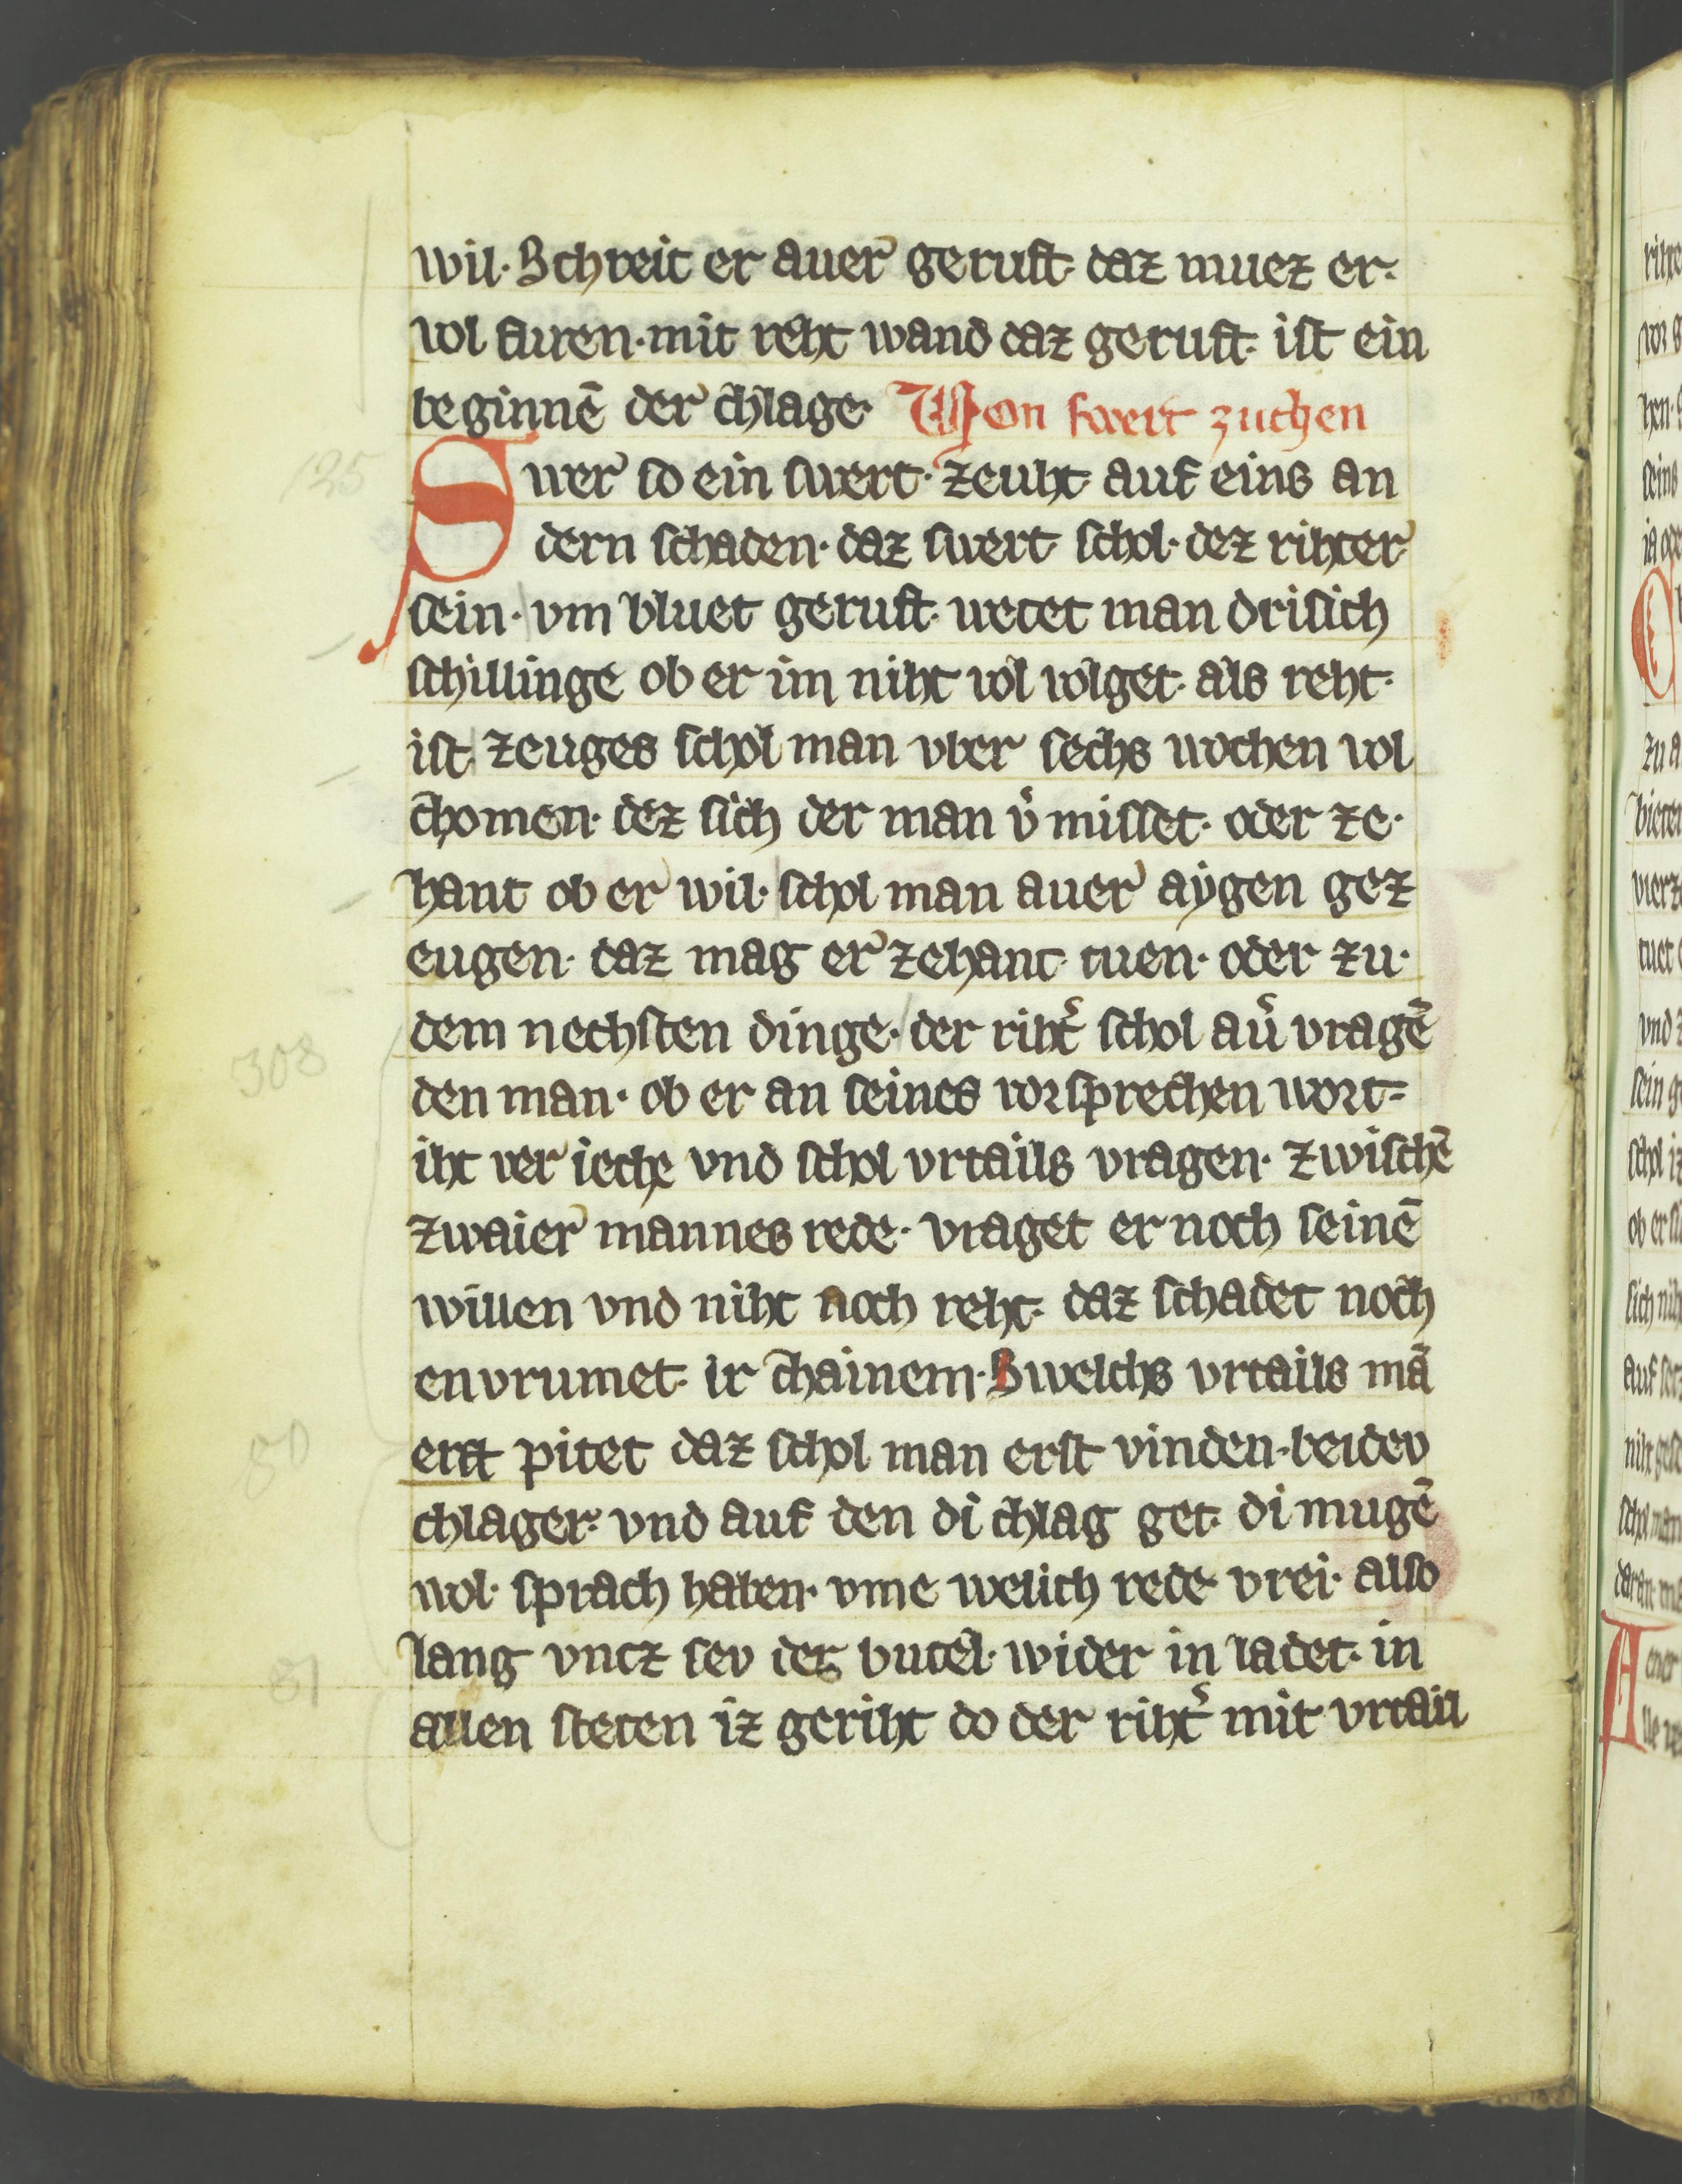 wil· Schreit er auer geruft· daz muez er·
vol furen·mit reht wand daz geruft· ist ein
beginnē der chlage· Von swert zuchen
Swer so ein swert· zeuht auf eins an
dern schaden· daz swert schol· dez rihter
sein· vm bluet geruft· wetet man drisich
schillinge ob er im niht vol volget· als reht·
ist zeuges schol man vber sechs wochen vol
chomen· dez sich der man v̾ misset· oder ze·
hant ob er wil· schol man auer aẏgen gez
eugen· daz mag er zehant· tuen· oder zu·
dem nechsten dinge· der riht̾ schol au̾ vragē
den man· ob er an seines vorsprechen wort=
iht ver ieche vnd schol vrtails vragen· zwischē
zwaier mannes rede· vraget er noch seinē
willen vnd niht noch reht· daz schadet noch
envrumet· ir chainem· Swelchs vrtails mā
erst pitet daz schol man erst vinden·beidev
chlager· vnd auf den di chlag get· di mugē
wol· sprach haben· vme welich rede vrei· also
lang vntz sev der butel· wider in ladet· in
allen steten iz geriht do der riht̾ mit vrtail
125
308
80
81